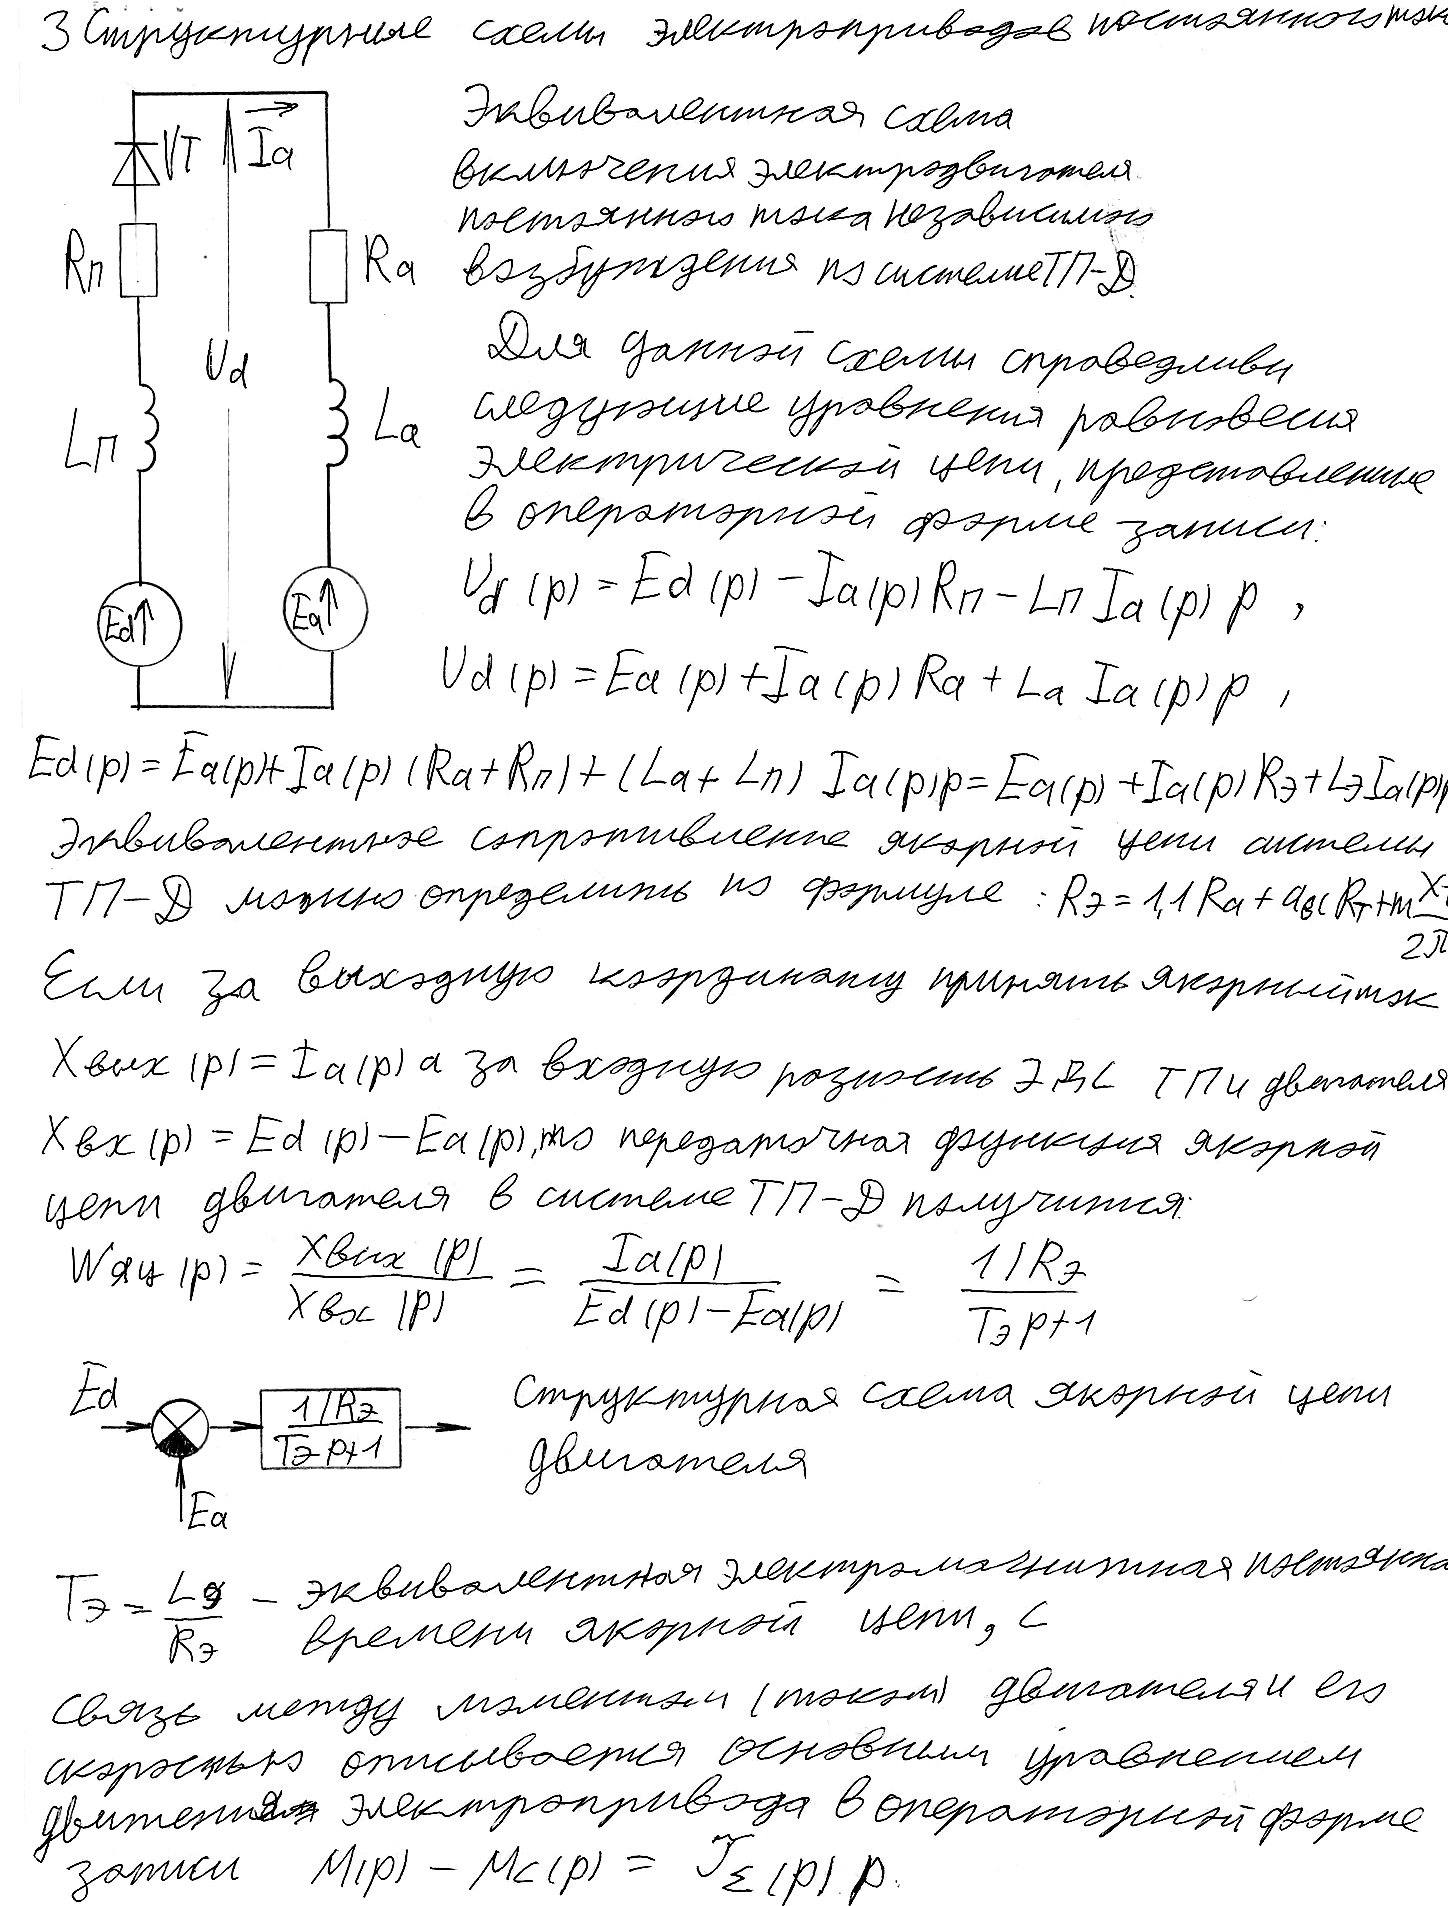 3 Структурные схемы электроприводов постоянного ток
VT Ia
Rп Ra
Ud
Lп La
Ed Ea
Эквивалентная схема
включения электродвигателя
постоянного тока независимого
возбуждения по системе ТП-Д.
Для данной схемы справедливы
следующие уравнения равновесия
электрической цепи, представленные
в операторной форме записи:
Ud(p) = Ed(p) - Ia(p)Rп - Lп Ia(p) p ,
Ud(p) = Ea(p) + Ia(p) Ra + La Ia(p) p ,
Ed(p) = Ea(p) + Ia(p) (Ra + Rп) + (La + Lп) Ia(p)p = Ea(p) + Ia(p) Rэ + Lэ Ia(p)p
Эквивалентное сопротивление якорной цепи системы
ТП-Д можно определить по формуле : Rэ = 1,1 Ra + aв(Rт + m Xт/2π
Если за выходную координату принять якорный ток
Xвых(p) = Ia(p) а за входную разность ЭДС ТП и двигателя
Xвх(p) = Ed(p) - Ea(p), то передаточная функция якорной
цепи двигателя в системе ТП-Д получится:
Wяц(p) = Xвых(p)/Xвх(p) = Ia(p)/Ed(p) - Ea(p) = 1/Rэ/Tэp+1
Ed 1/Rэ/Tэp+1 Ea
Структурная схема якорной цепи
двигателя
Tэ = Lэ/Rэ - эквивалентная электромагнитная постоянна
времени якорной цепи, с
Связь между моментом (током) двигателя и его
скоростью описывается основным уравнением
движения электропривода в операторной форме
записи M(p) - Mc(p) = J Σ(p) p.